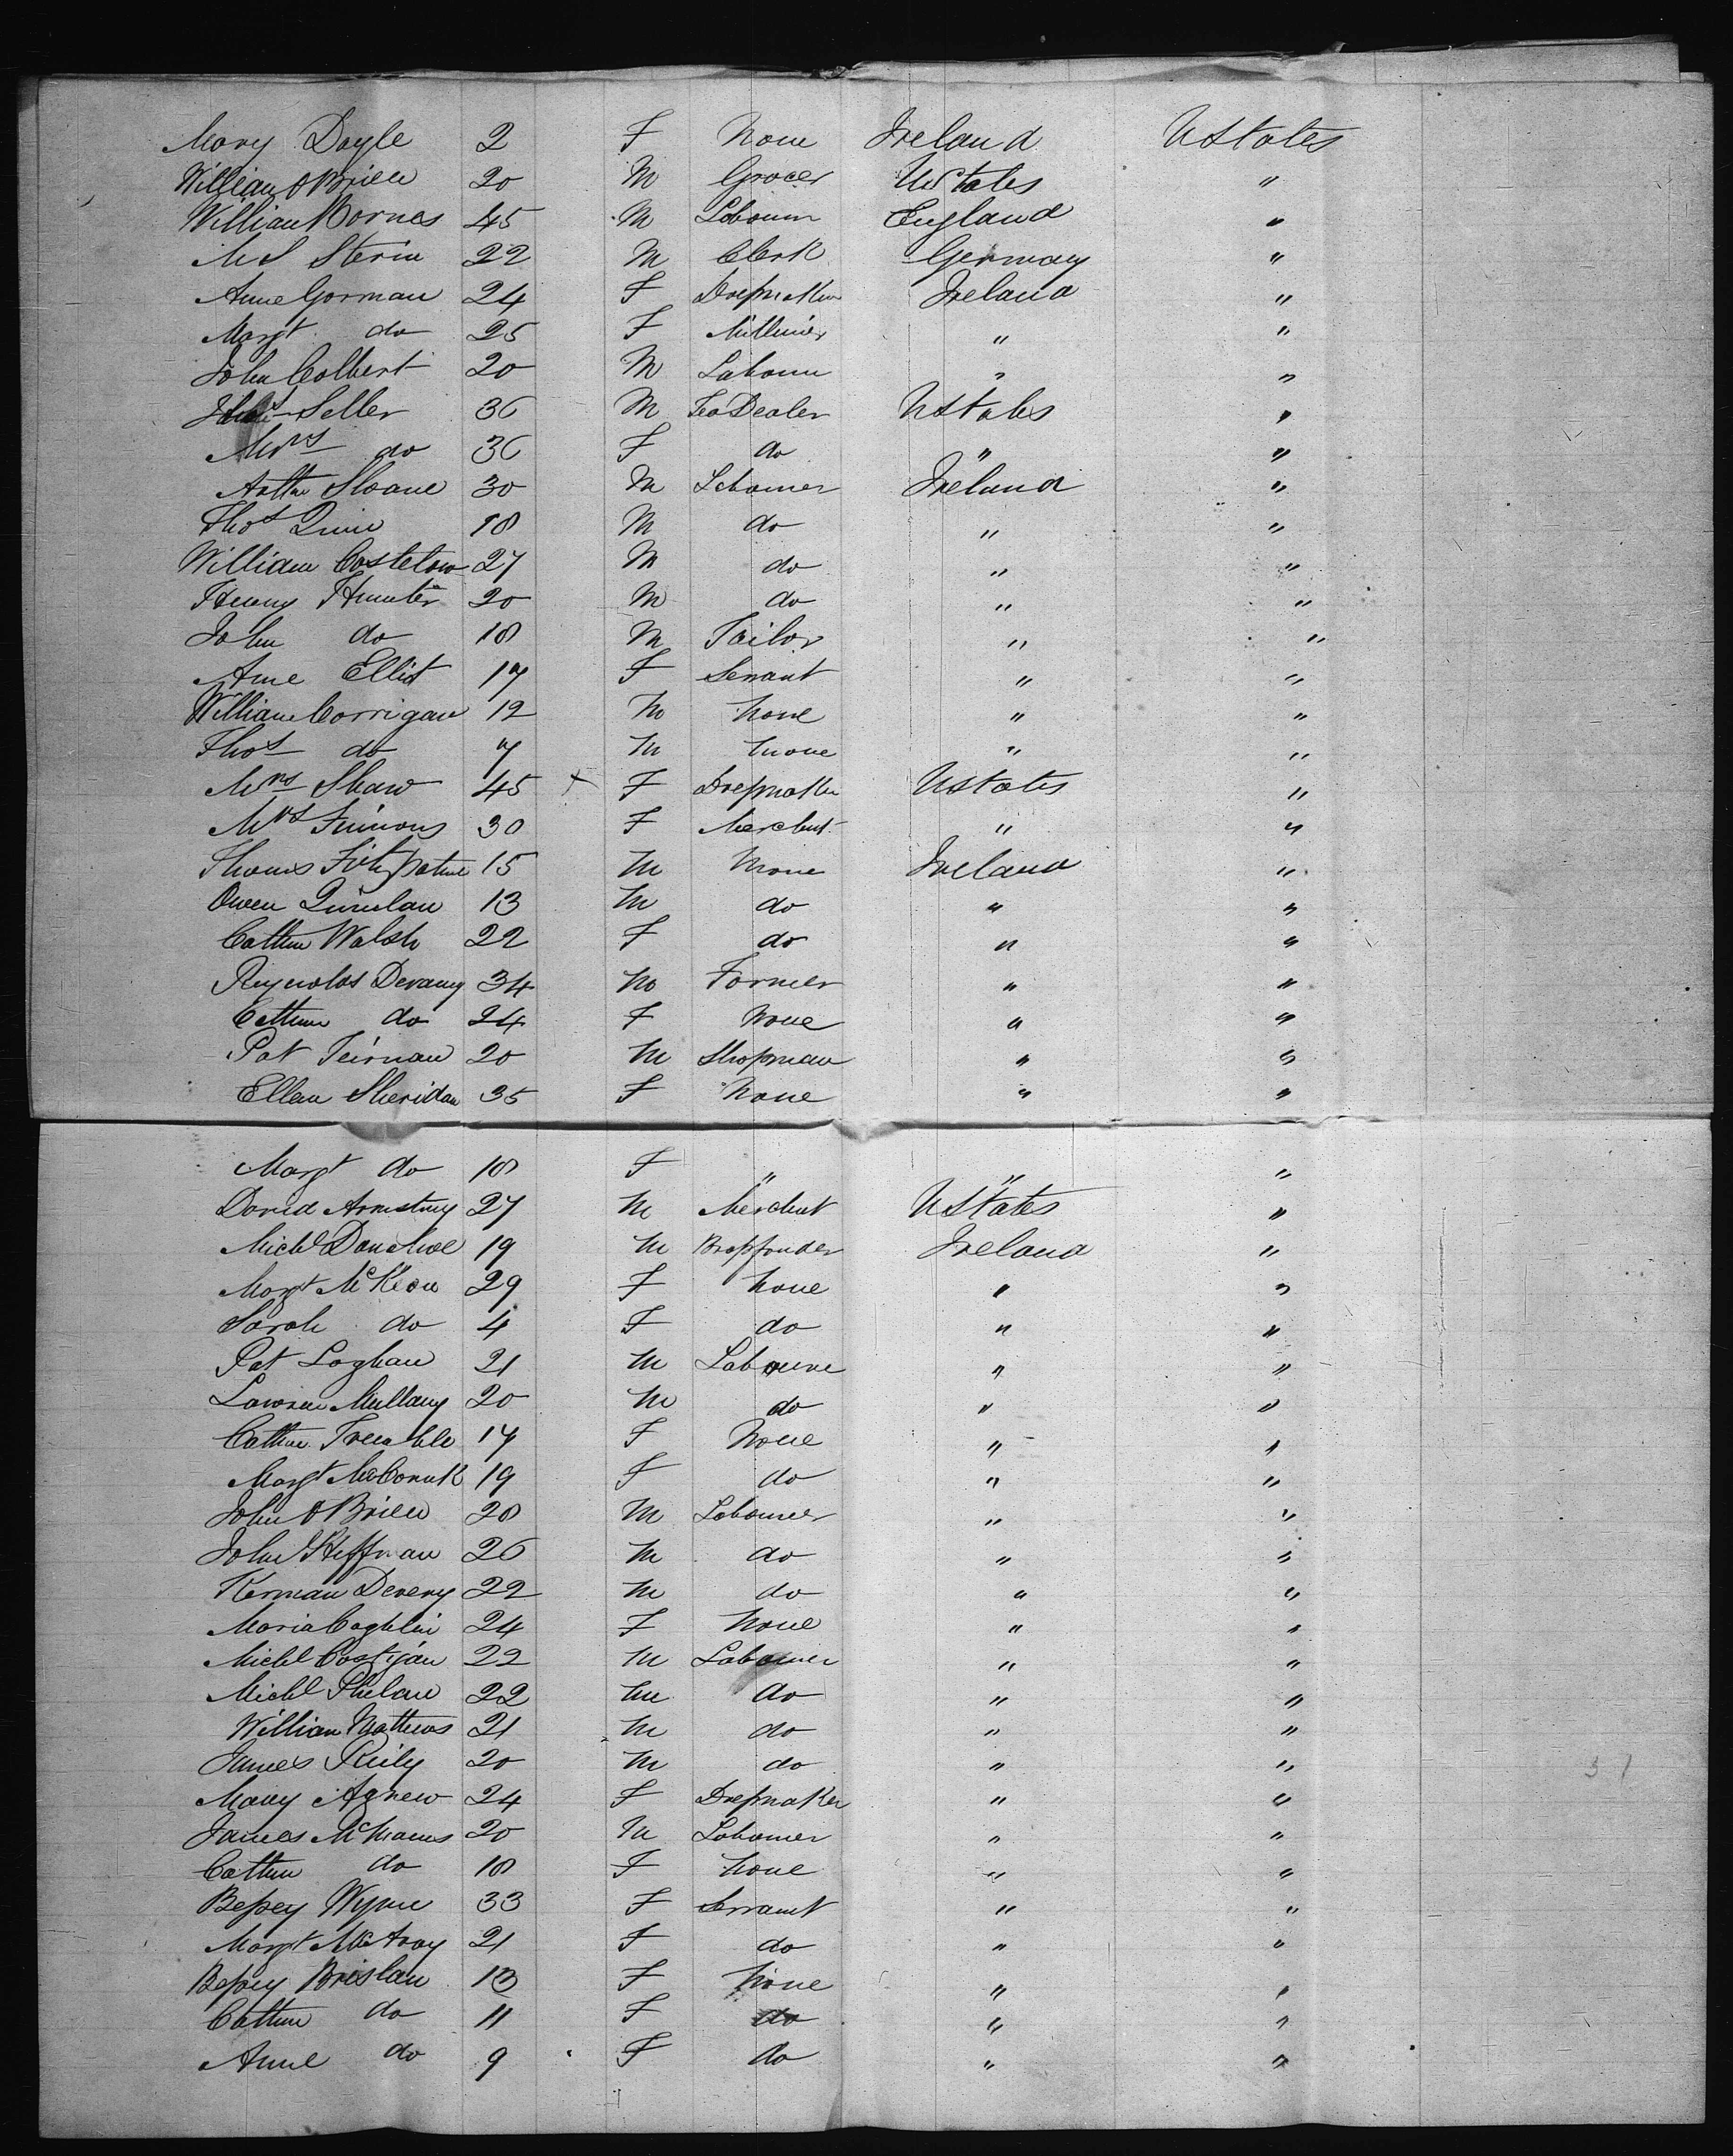 Mary Doyle 2 F None Ireland UStates
William OBrien 20 M Grocer UStates "
William Barnes 45 M Labourr England "
M S Sterin 22 M Clerk Germany "
Anne Gorman 24 F Dressmaker Ireland "
Margt do 25 F Milliner " "
John Colbert 20 M Labourr " "
Seller 36 M TeaDealer UStates "
Mrs do 36 F do " "
Arthur Sloane 30 M Labourer Ireland "
Thos Quin 18 M do " "
William Costelow 27 M do " "
Henry Hunter 20 M do " "
John do 18 M Tailor " "
Anne Elliot 17 F Servant " "
William Corrigan 12 M None " "
Thos do 7 M None " "
Mrs Shaw 45 x F Dressmaker UStates "
Mrs Simons 30 F Merchnt " "
Thomas Fitzpatrick 15 M None Ireland "
Owen Quinlan 13 M do " "
Cathne Walsh 22 F do " "
Reynolds Devany 34 M Farmer " "
Cathne do 24 F None " "
Pat Teirnan 20 M Shopman " "
Ellen Sheridan 35 F None " "
Margt do 18 F " " "
David Armstrong 27 M Merchnt UStates "
Michl Donahoe 19 M Brassfounder Ireland "
Margt McKeon 29 F None " "
Sarah do 4 F do " "
Pat Loghan 21 M Labourer " "
Lawrence Mullany 20 M do " "
Cathne Trenble 17 F None " "
Margt McCormk 19 F do " "
John OBrien 28 M Labourer " "
John Heffnan 26 M do " "
Kernan Deveny 22 M do " "
Maria Coghlin 24 F None " "
Michl Costigan 22 M Labourer " "
Michl Phelan 22 M do " "
William Mathews 21 M do " "
James Reily 20 M do " "
Mary Agnew 24 F Dressmaker " "
James McManus 20 M Labourer " "
Cathne do 18 F None " "
Bessey Wynne 33 F Servant " "
Margt McAvoy 21 F do " "
Bessey Brislan 13 F None " "
Cathne do 11 F do " "
Anne do 9 F do " "